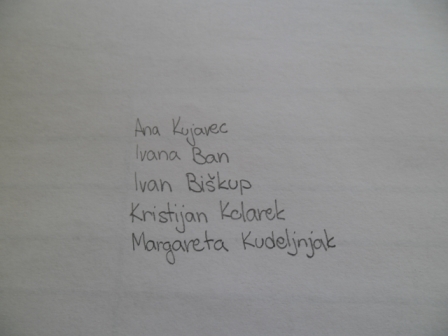 Ana Kujavec
Ivana Ban
Ivan Biškup
Kristijan Kolarek
Margareta Kudeljnjak